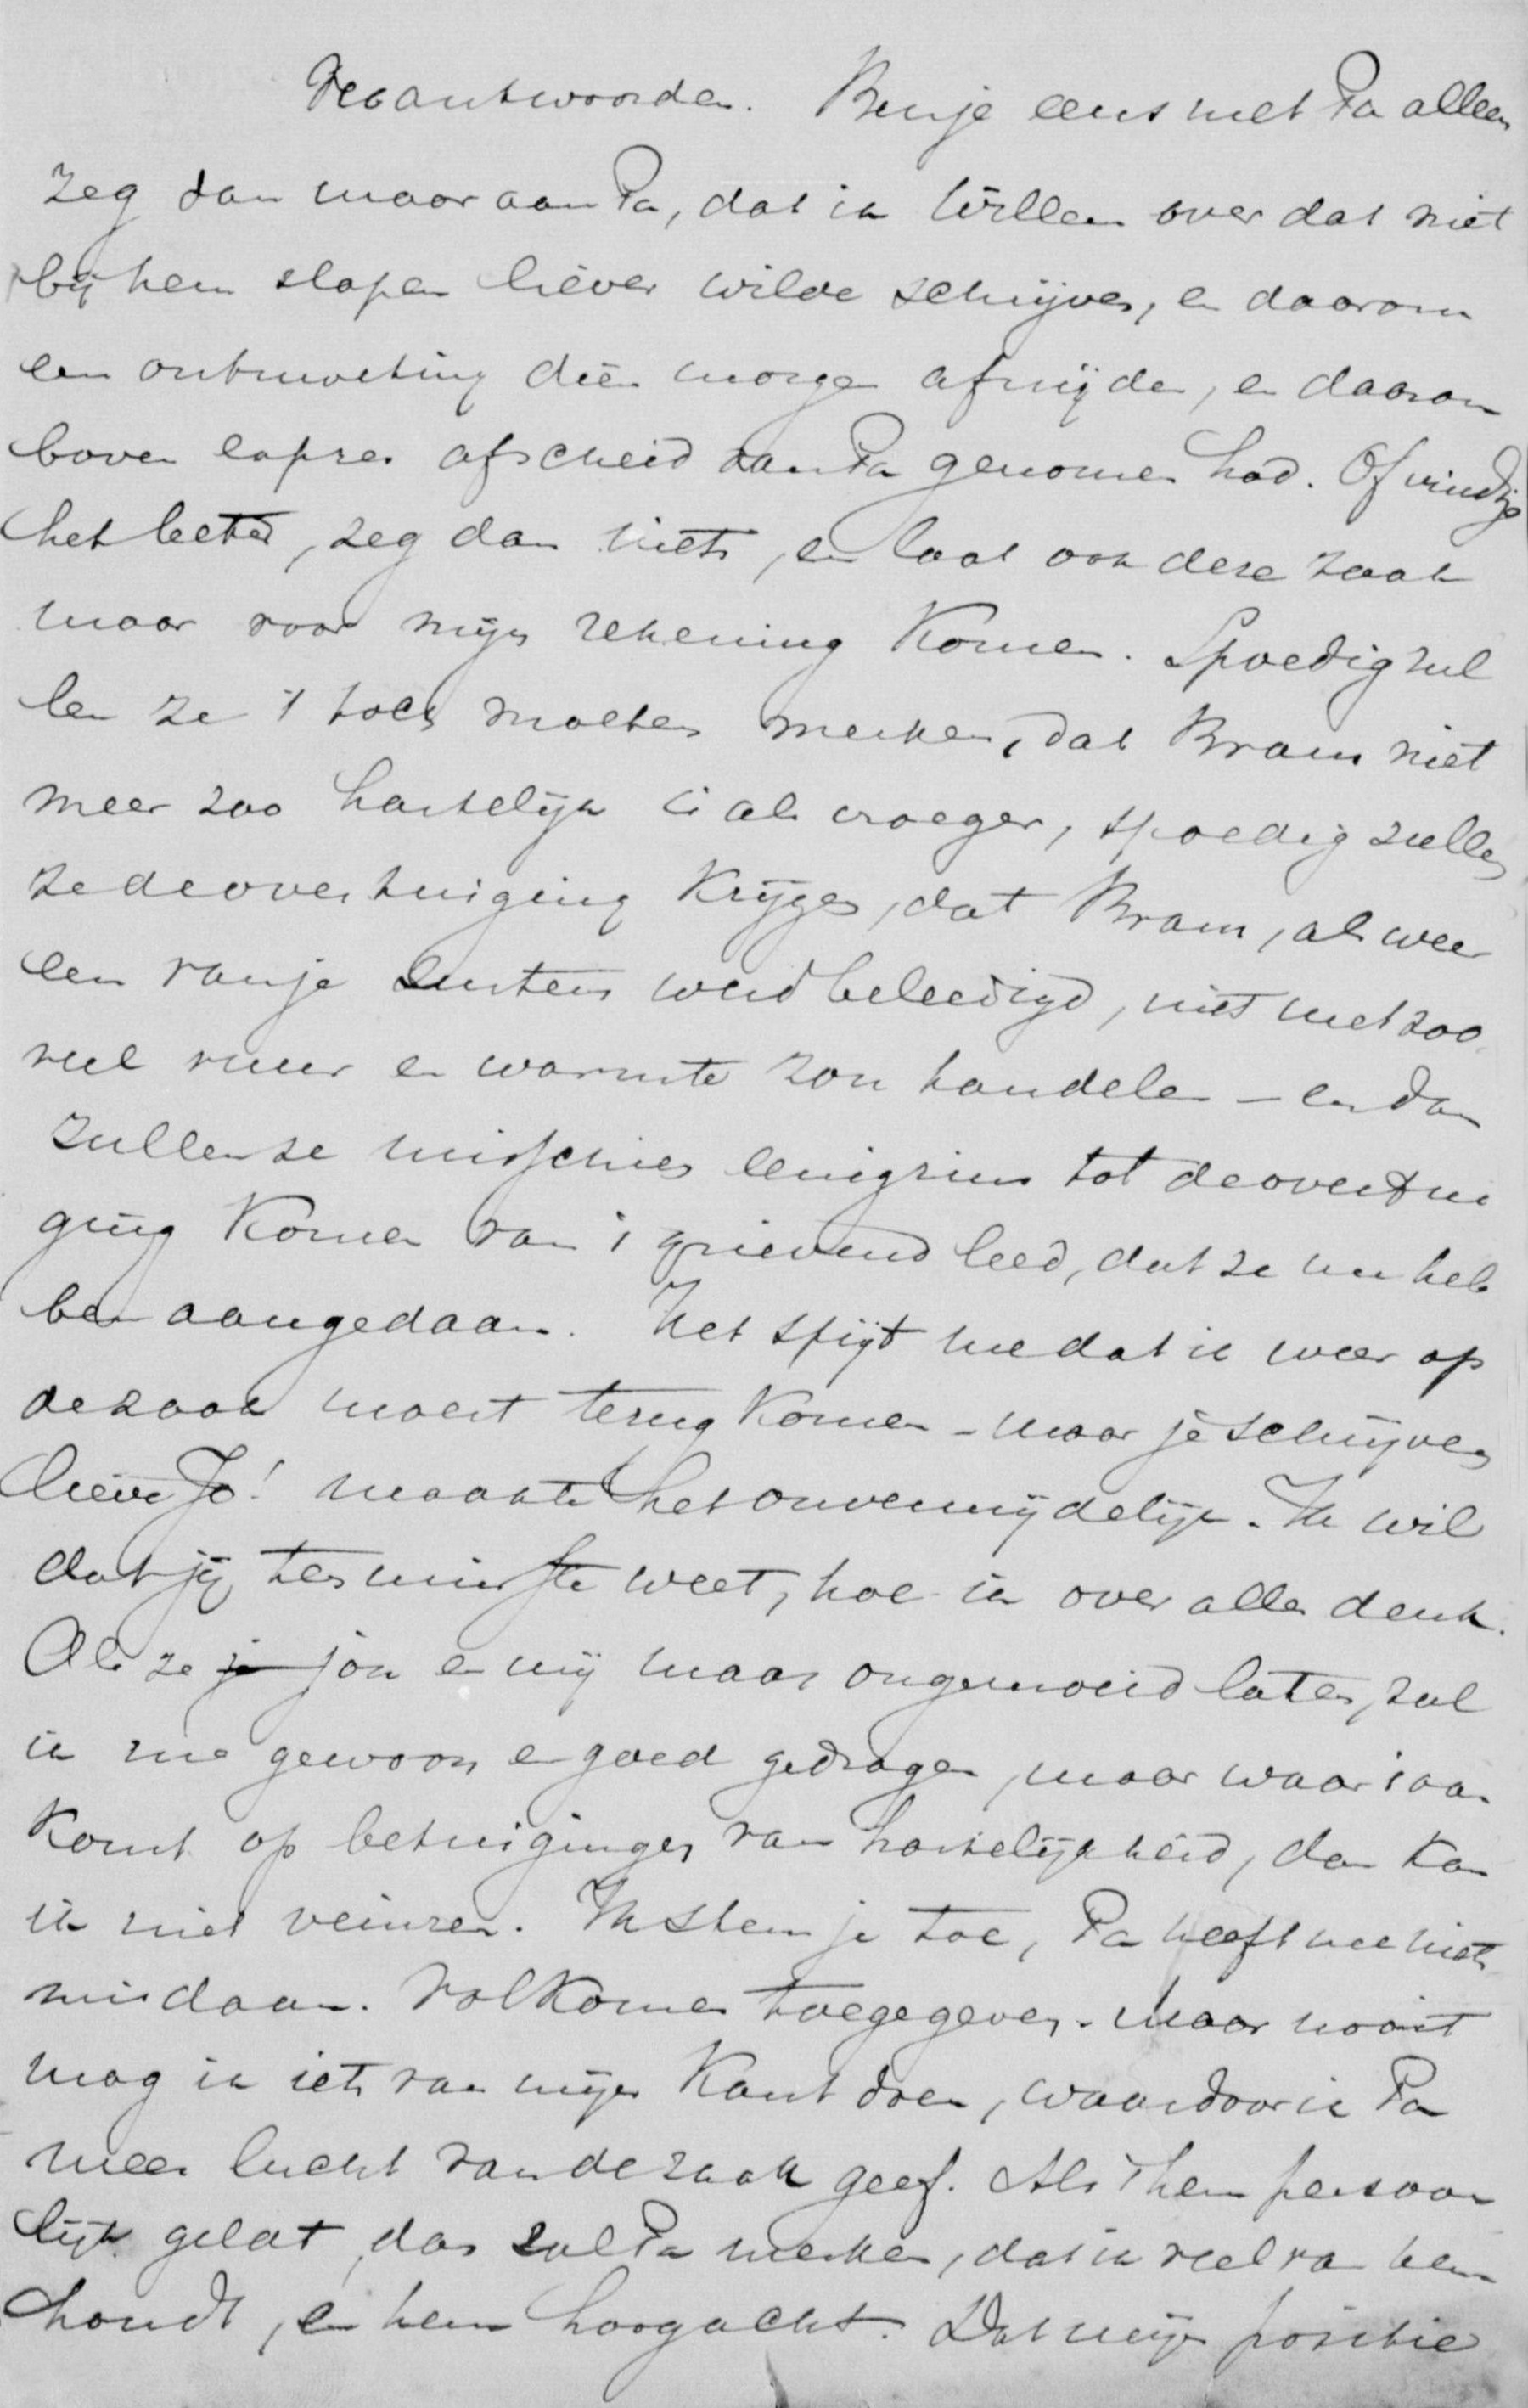 verantwoorden. Ben je eens met Pa alleen
zeg dan maar aan Pa, dat ik Willem over dat niet
bij hem slapen liever wilde schrijven, en daarom
een ontmoeting dien morgen afmijden, en daarom
boven expres afscheid van Pa genomen had. Of vindt je
het beter, zeg dan niets, en laat ook deze zaak
maar voor mijn rekening komen. Spoedig zul
len ze 't toch moeten merken, dat Bram niet
meer zoo hartelijk is als vroeger, spoedig zullen
ze de overtuiging krijgen, dat Bram, als weer
een van je zusters werd beleedigd, niet met zoo
veel vuur en warmte zou handelen – en dan
zullen ze misschien eenigzins tot de overtui
ging komen van 't grievend leed, dat ze me heb
ben aangedaan. Het spijt me dat ik weer op
de zaak moest terug komen – maar je schrijven
lieve Jo! maakte het onvermijdelijk. Ik wil
dat jij ten minste weet, hoe ik over alles denk.
Als ze je jou en mij maar ongemoeid laten, zal
ik me gewoon en goed gedragen, maar waar 't aan
komt op betuigingen van hartelijkheid, dan kan
ik niet veinzen. Ik stem je toe, Pa heeft me niets
misdaan. Volkomen toegegeven. Maar nooit
mag ik iets van mijn kant doen, waardoor ik Pa
meer lucht van de zaak geef. Als 't hem persoon
lijk geldt, dan zal Pa merken, dat ik veel van hem
houdt, en hem hoogacht. Dat mijn positie